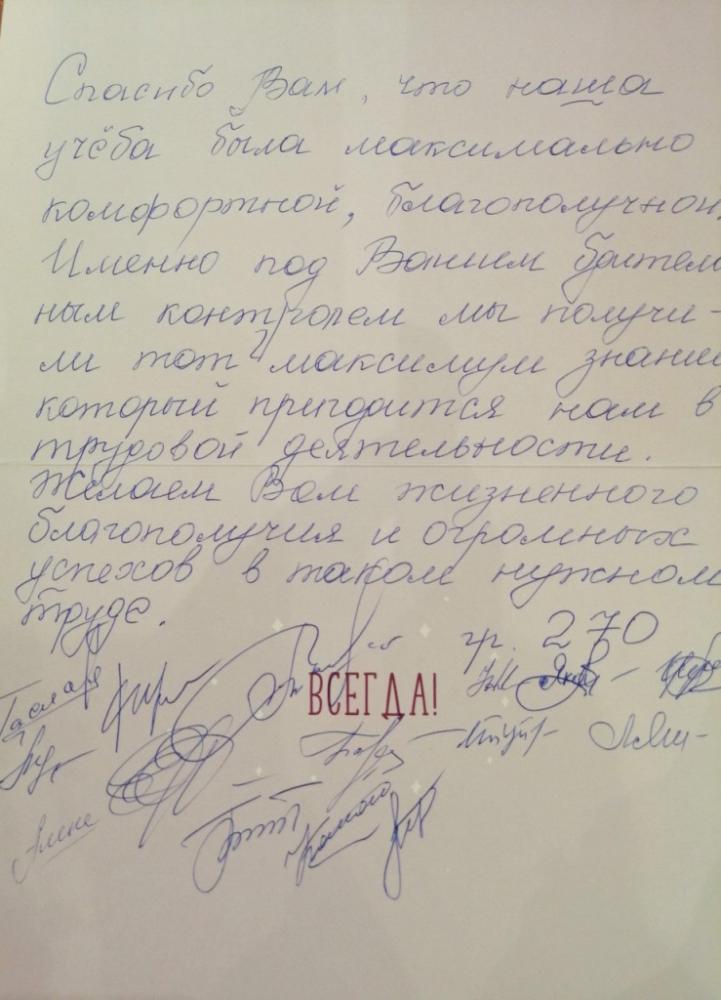 Спасибо Вам, что наша
учёба была максимально
комфортной, благополучной,
Именно под Вашим бдитель
ным контролем мы получи-
ли тот максимум знаний
который пригодится нам в
трудовой деятельности.
Желаем Вам жизненного
благополучия и огромных
успехов в таком нужном
труде.
гр. 270
ВСЕГДА!